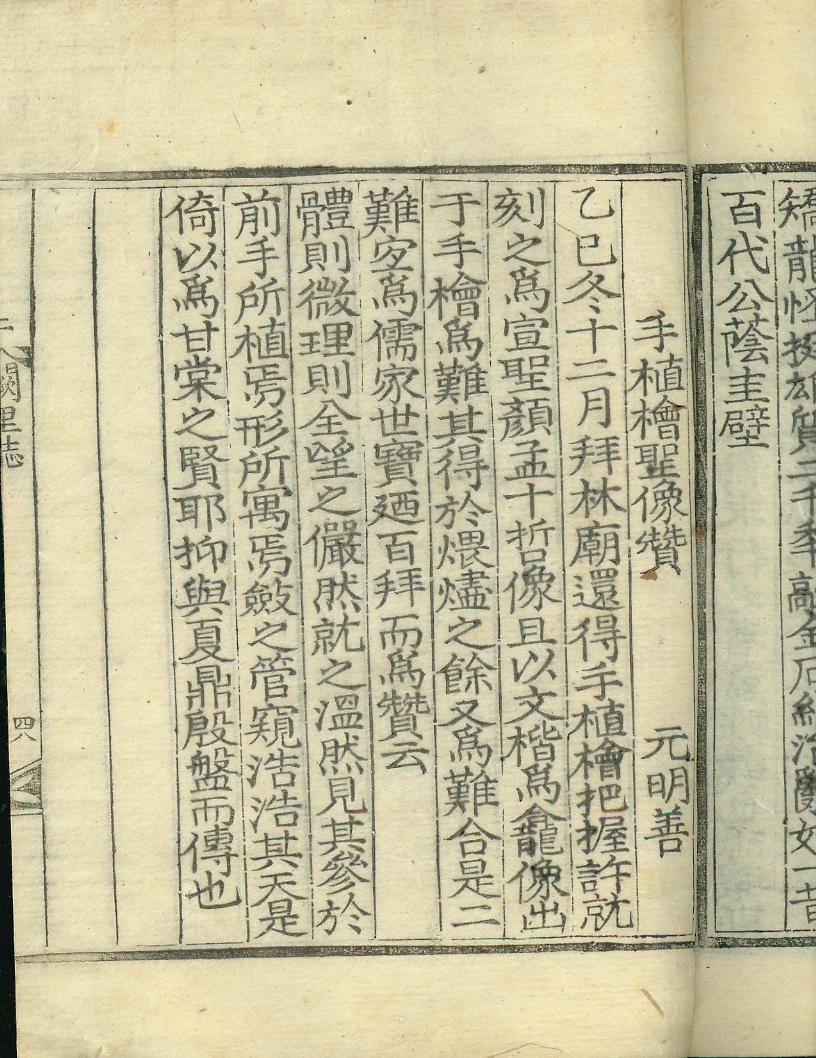 矯龍怪挺雄質二千年敲金石紹治亂如一昔
百代公蔭圭璧
手植檜聖像贊 元明善
乙巳冬十二月拜林廟還得手植檜把握許就
刻之爲宣聖顏孟十哲像且以文楷爲龕像出
于手檜爲難其得於煨燼之餘又爲難合是二
難宜爲儒家世寶廼百拜而爲贊云
體則微理則全望之儼然就之溫然見其參於
前手所植焉形所寓焉斂之管窺浩浩其天是
倚以爲甘棠之賢耶抑與夏鼎殷盤而傳也
闕里誌
四八